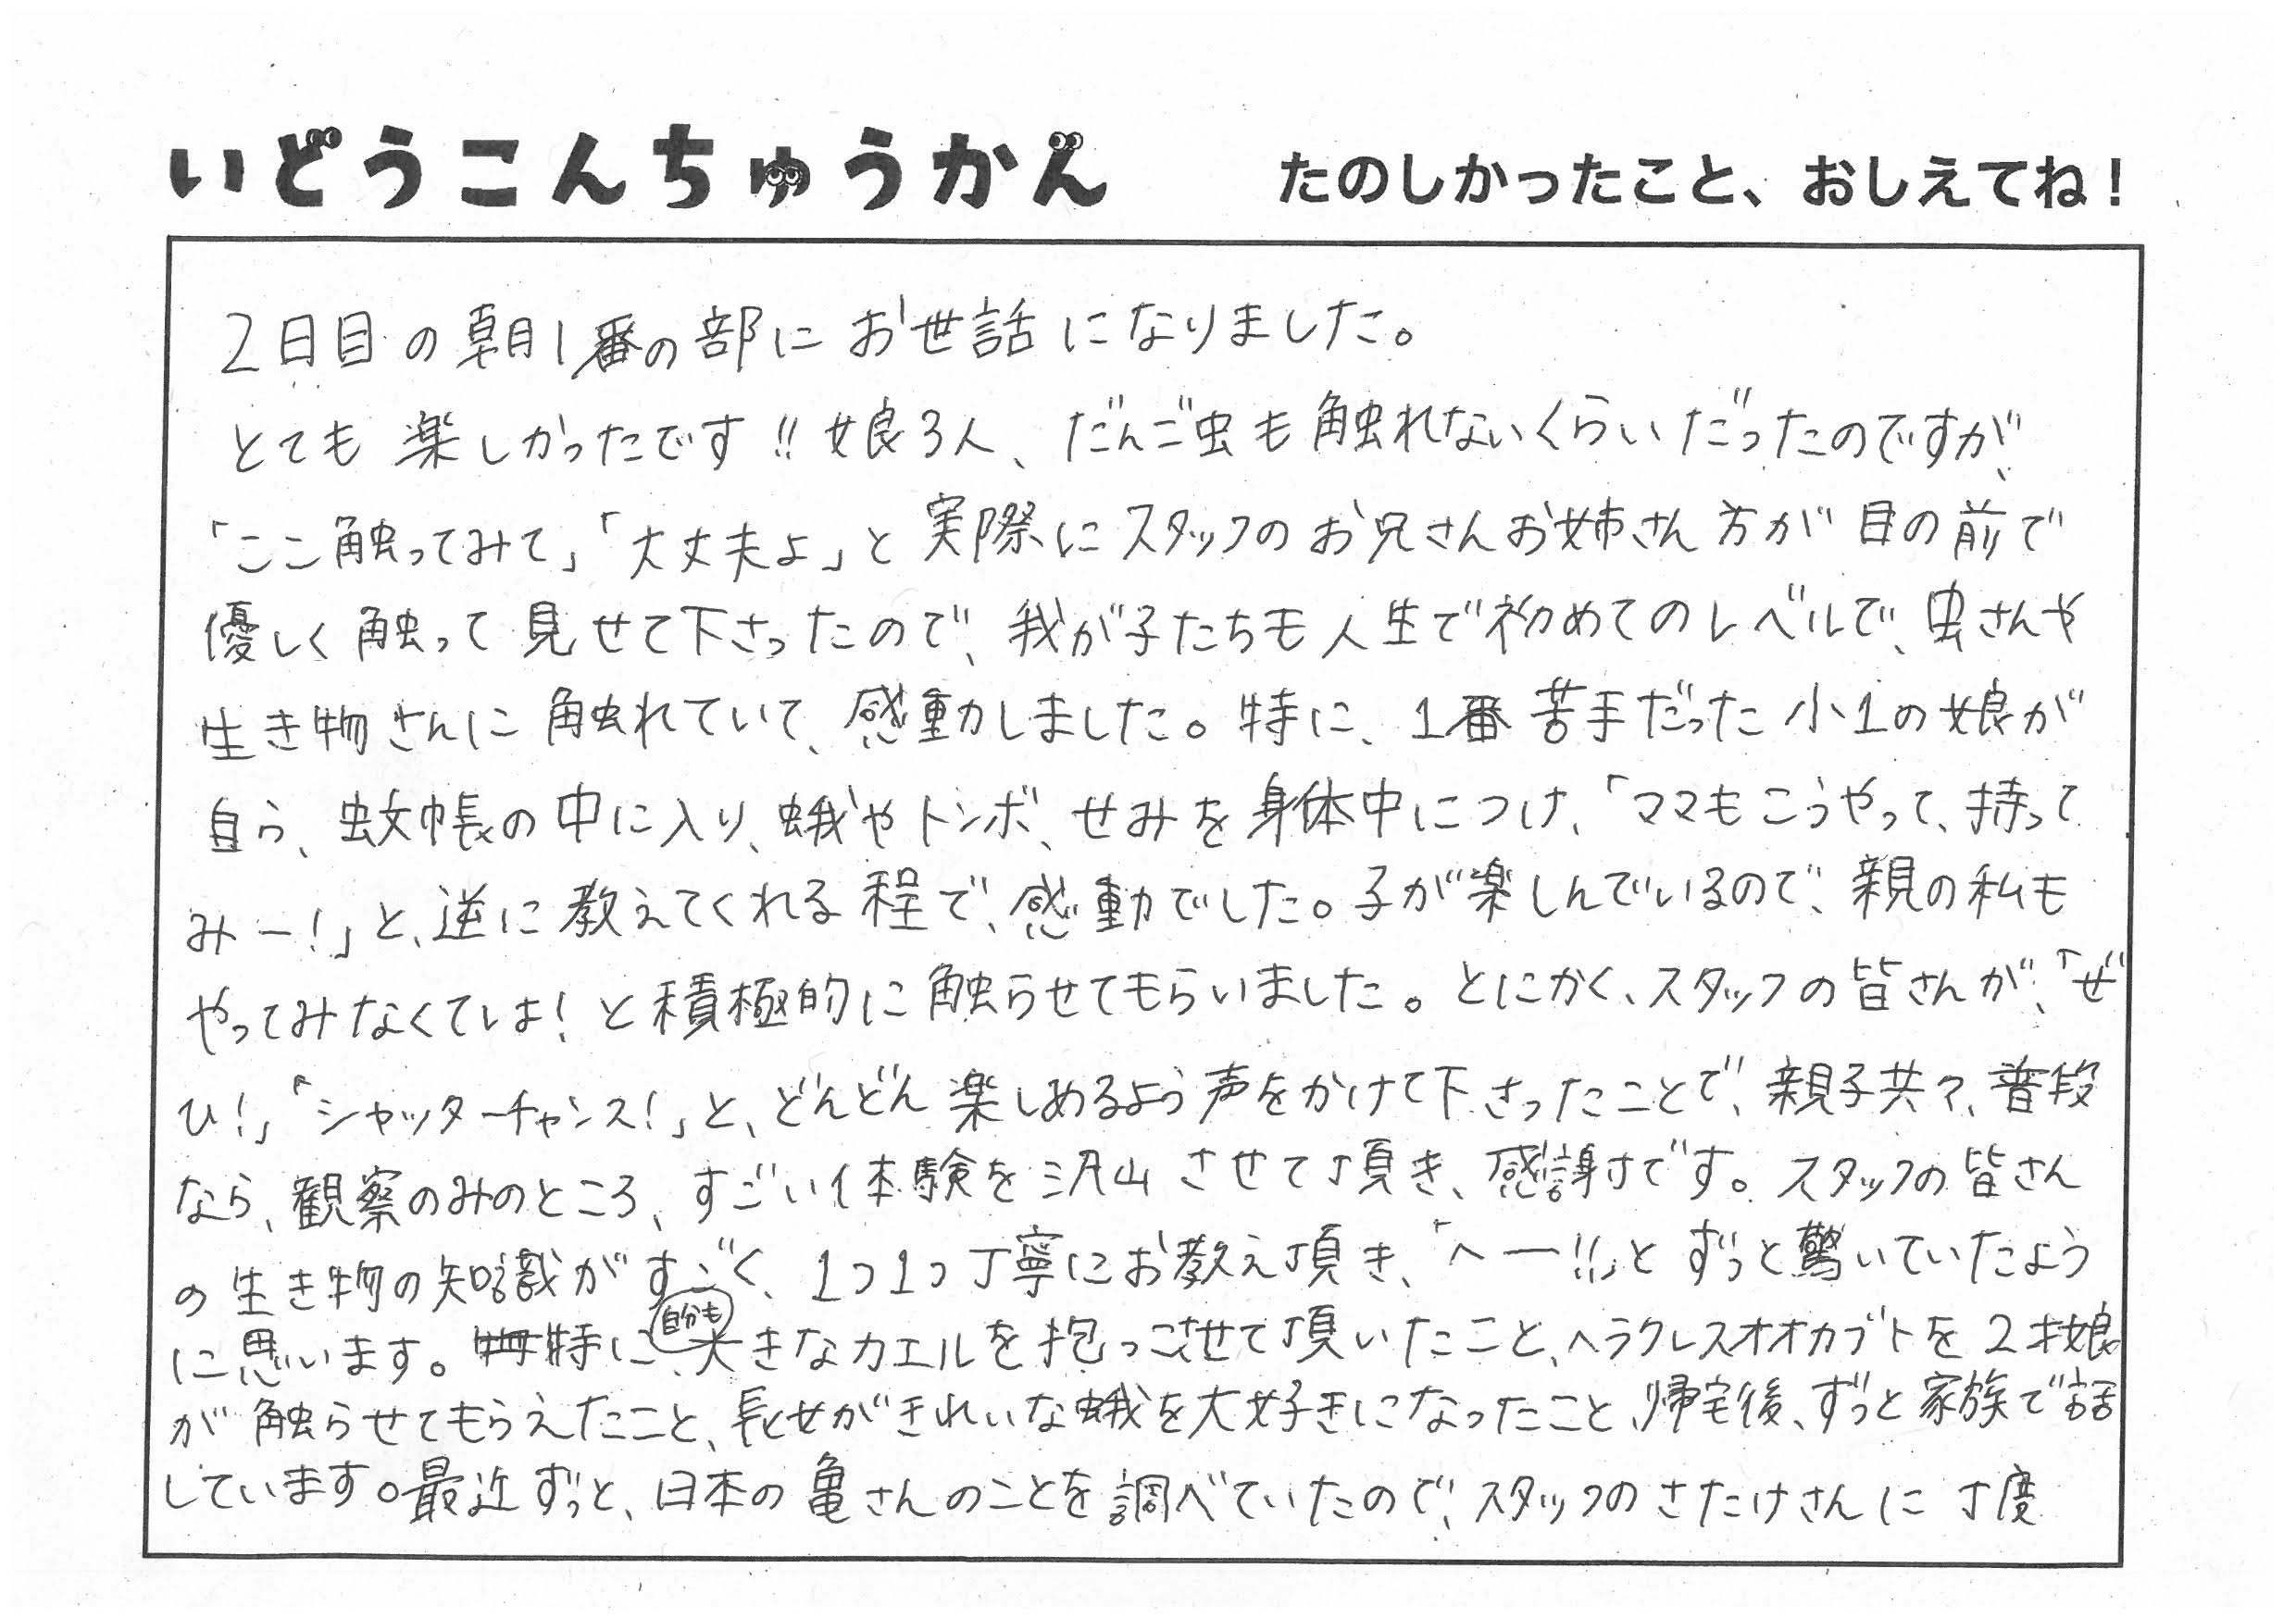 いどうこんちゅうかん
たのしかったこと、おしえてね！
2日目の朝1番の部にお世話になりました。
とても楽しかったです!!娘3人、だんご虫も触れないくらいだったのですが、
「ここ触ってみて」「大丈夫よ」と実際にスタッフのお兄さんお姉さん方が目の前で
優しく触って見せて下さったので、我が子たちも人生で初めてのレベルで、虫さんや
生き物さんに触れていて、感動しました。特に、1番苦手だった小1の娘が
自ら、蚊帳の中に入り、蛾やトンボ、せみを身体中につけ、「ママもこうやって、持って
みー!」と、逆に教えてくれる程で、感動でした。子が楽しんでいるので、親の私も
やってみなくては!と積極的に触らせてもらいました。とにかく、スタッフの皆さんが、「ぜ
ひ!」「シャッターチャンス!」と、どんどん楽しめるよう声をかけて下さったことで、親子共々、普段
なら、観察のみのところ、すごい体験を沢山させて頂き、感謝です。スタッフの皆さん
の生き物の知識がすごく、1つ1つ丁寧にお教え頂き、「へー!!」とずっと驚いていたよう
に思います。特に、自分も大きなカエルを抱っこさせて頂いたこと、ヘラクレスオオカブトを2才娘
が触らせてもらえたこと、長女がきれいな蛾を大好きになったこと、帰宅後、ずっと家族で話
しています。最近ずっと、日本の亀さんのことを調べていたので、スタッフのさたけさんに丁度